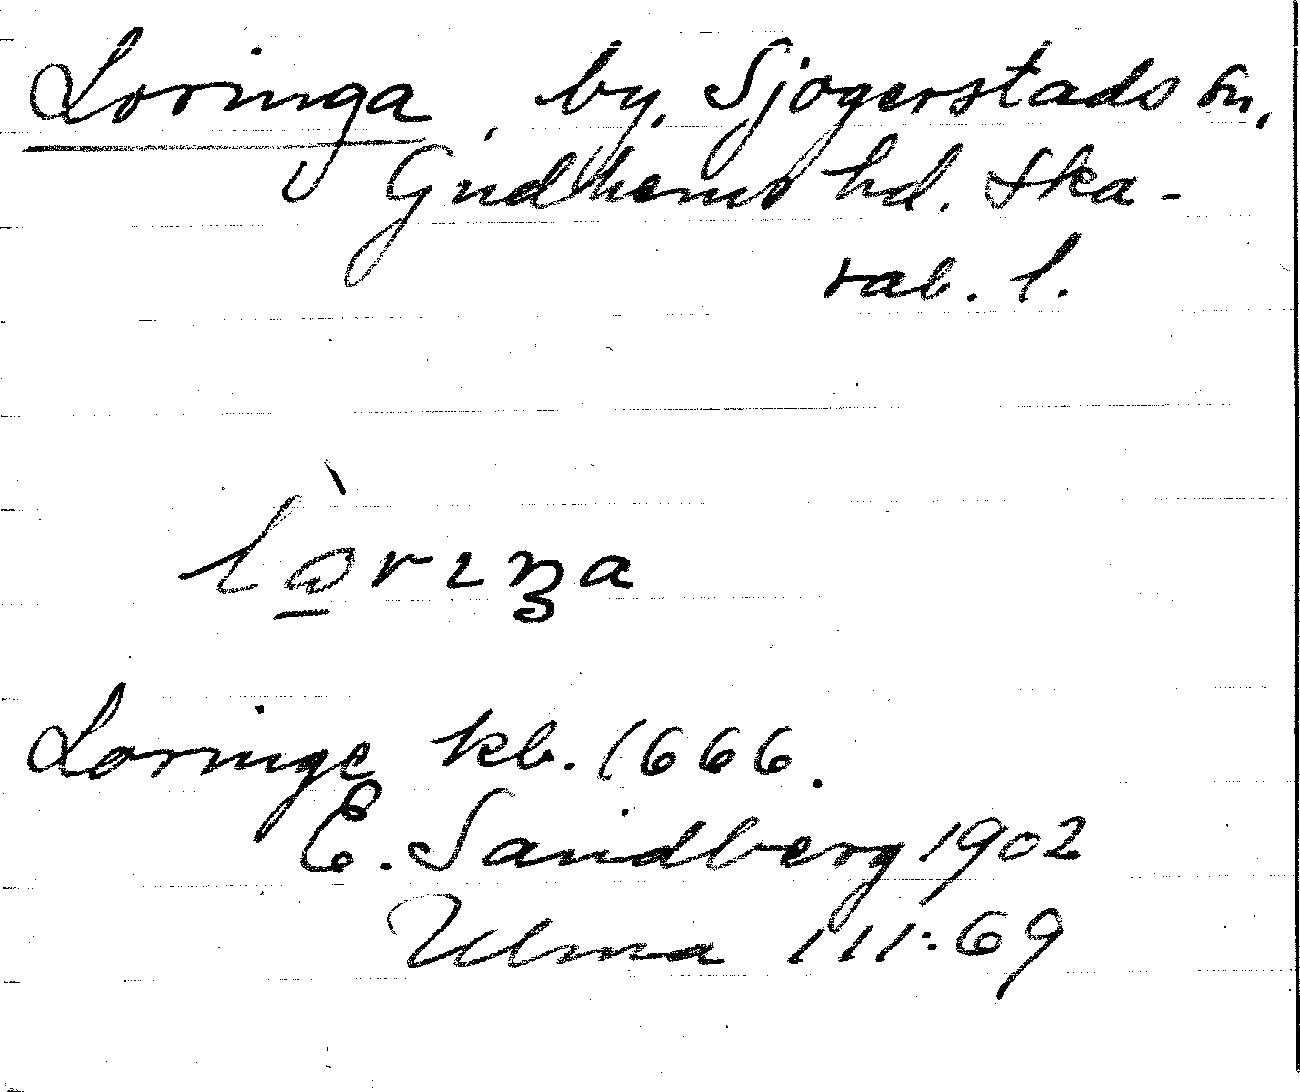 Loringa, by, Sjogerstads sn,
Gudhems hd. Ska-
rab. l.
lò̱rıŋa
Loringe kb. 1666.
E. Sandberg 1902
Ulma 111:69